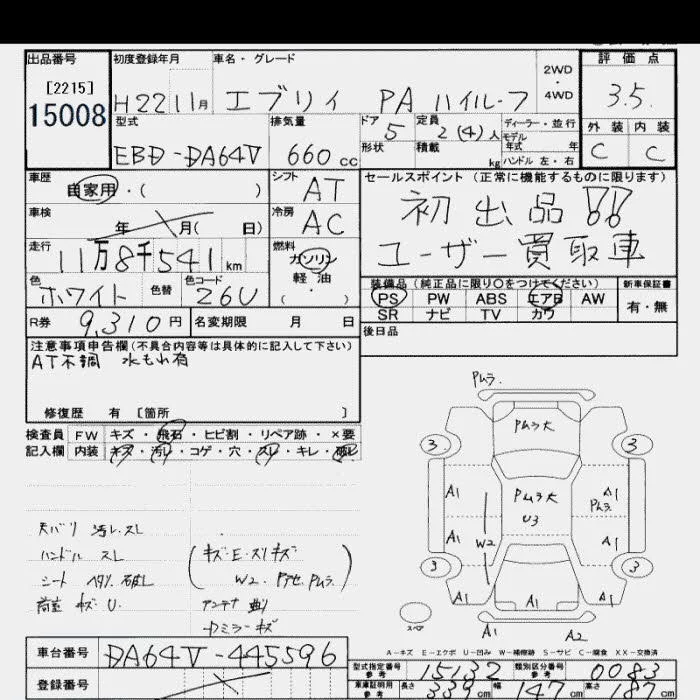 出品番号 [2215] 15008
初度登録年月 H22 11月
車名・グレード エブリィ PA ハイルーフ
2WD・4WD
評価点 3.5.
型式 EBD-DA64V
排気量 660 cc
ドア 5
形状
定員 2(4)人
積載 kg
ディーラー・並行
モデル年式 年
ハンドル 左・右
外装 C
内装 C
車歴 自家用・( )
シフト AT
車検 年 月( 日)
冷房 AC
走行 11万8千541km
燃料 ガソリン 軽油 ( ・ )
色 ホワイト 色替
色コード 26U
セールスポイント(正常に機能するものに限ります)
初出品!!
ユーザー買取車
装備品(純正品に限り○をつけてください)
PS PW ABS エアB AW
SR ナビ TV カワ
新車保証書 有・無
後日品
R券 9,310円
名変期限 月 日
注意事項申告欄(不具合内容等は具体的に記入して下さい)
AT不調 水もれ有
修復歴 有 [箇所 ]
検査員記入欄
FW キズ・飛石・ヒビ割・リペア跡・×要
内装 キズ・汚レ・コゲ・穴・スレ・キレ・破レ
天バリ 汚レ.スレ
ハンドル スレ
シート ヘタリ.破レ
荷室 キズ.U.
(キズ・E・スリキズ
W2.Pアセ.Pムラ.)
アンテナ 曲り
ミラーキズ
Pムラ.
Pムラ大
3 3
A1 Pムラ大 A1
U3 Pムラ.
A1 W2 A1
3 3
A1 A1 A1
スペア
A1 A2
A-キズ E-エクボ U-凹み W-補修跡 S-サビ C-腐食 XX-交換済
車台番号 DA64V-445596
登録番号
型式指定番号 参考 15132
類別区分番号 参考 0083
車庫証明用 参考 長さ 339cm 幅 147cm 高さ 187cm